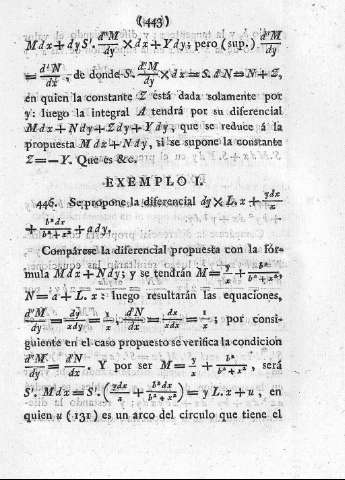 (443)
Mdx + dyS'. d'M/dy × dx + Ydy; pero (sup.) d'M/dy
= d'N/dx, de donde S. d'M/dy × dx = S. d'N = N + Z,
en quien la constante Z está dada solamente por
y: luego la integral A tendrá por su diferencial
Mdx + Ndy + Zdy + Ydy, que se reduce á la
propuesta Mdx + Ndy, si se supone la constante
Z = — Y. Que es &c.
EXEMPLO I.
446. Se propone la diferencial dy × L. x + ydx/x
+ b²dx/b² + x² + ady,
Compárese la diferencial propuesta con la fór-
mula Mdx + Ndy; y se tendrán M = y/x + b²/b² + x²,
N = a + L. x: luego resultarán las equaciones,
d'M/dy = dy/xdy = 1/x, d'N/dx = dx/xdx = 1/x; por consi-
guiente en el caso propuesto se verifica la condicion
d'M/dy = d'N/dx. Y por ser M = y/x + b²/b² + x², será
S'. Mdx = S'. (ydx/x + b²dx/b² + x²) = y L. x + u, en
quien u (131) es un arco del círculo que tiene el